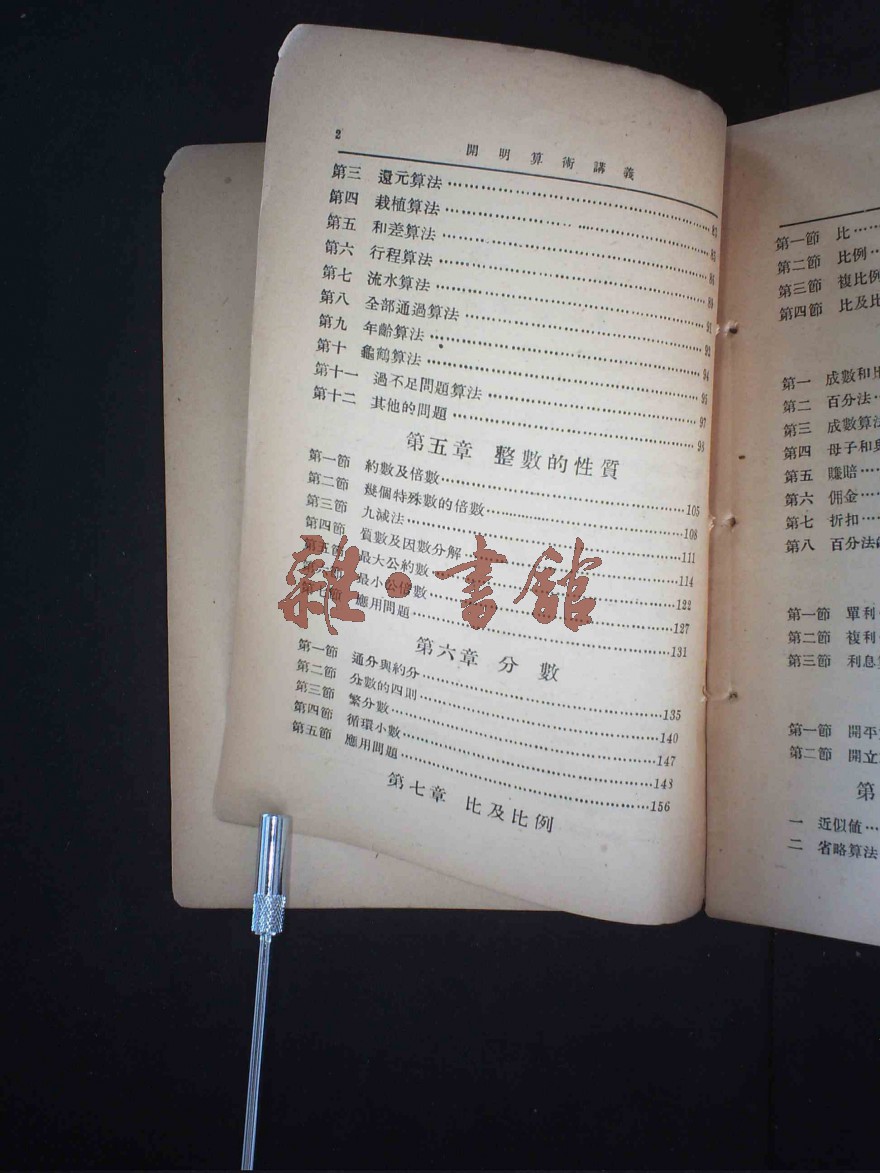 2
開明算術講義
第三 還元算法
第四 栽植算法 83
第五 和差算法 85
第六 行程算法 86
第七 流水算法 89
第八 全部通過算法 91
第九 年齡算法 92
第十 龜鶴算法 94
第十一 過不足問題算法 95
第十二 其他的問題 97
98
第五章 整數的性質
第一節 約數及倍數 105
第二節 幾個特殊數的倍數 108
第三節 九減法 111
第四節 質數及因數分解 114
第五節 最大公約數 122
第六節 最小公倍數 127
第七節 應用問題 131
第六章 分數
第一節 通分與約分 135
第二節 分數的四則 140
第三節 繁分數 147
第四節 循環小數 148
第五節 應用問題 156
第七章 比及比例
雜·書館
第一節 比
第二節 比例
第三節 複比例
第四節 比及比
第一 成數和
第二 百分法
第三 成數算法
第四 母子和
第五 賺賠
第六 佣金
第七 折扣
第八 百分法
第一節 單利
第二節 複利
第三節 利息
第一節 開平
第二節 開立
第
一 近似値
二 省略算法